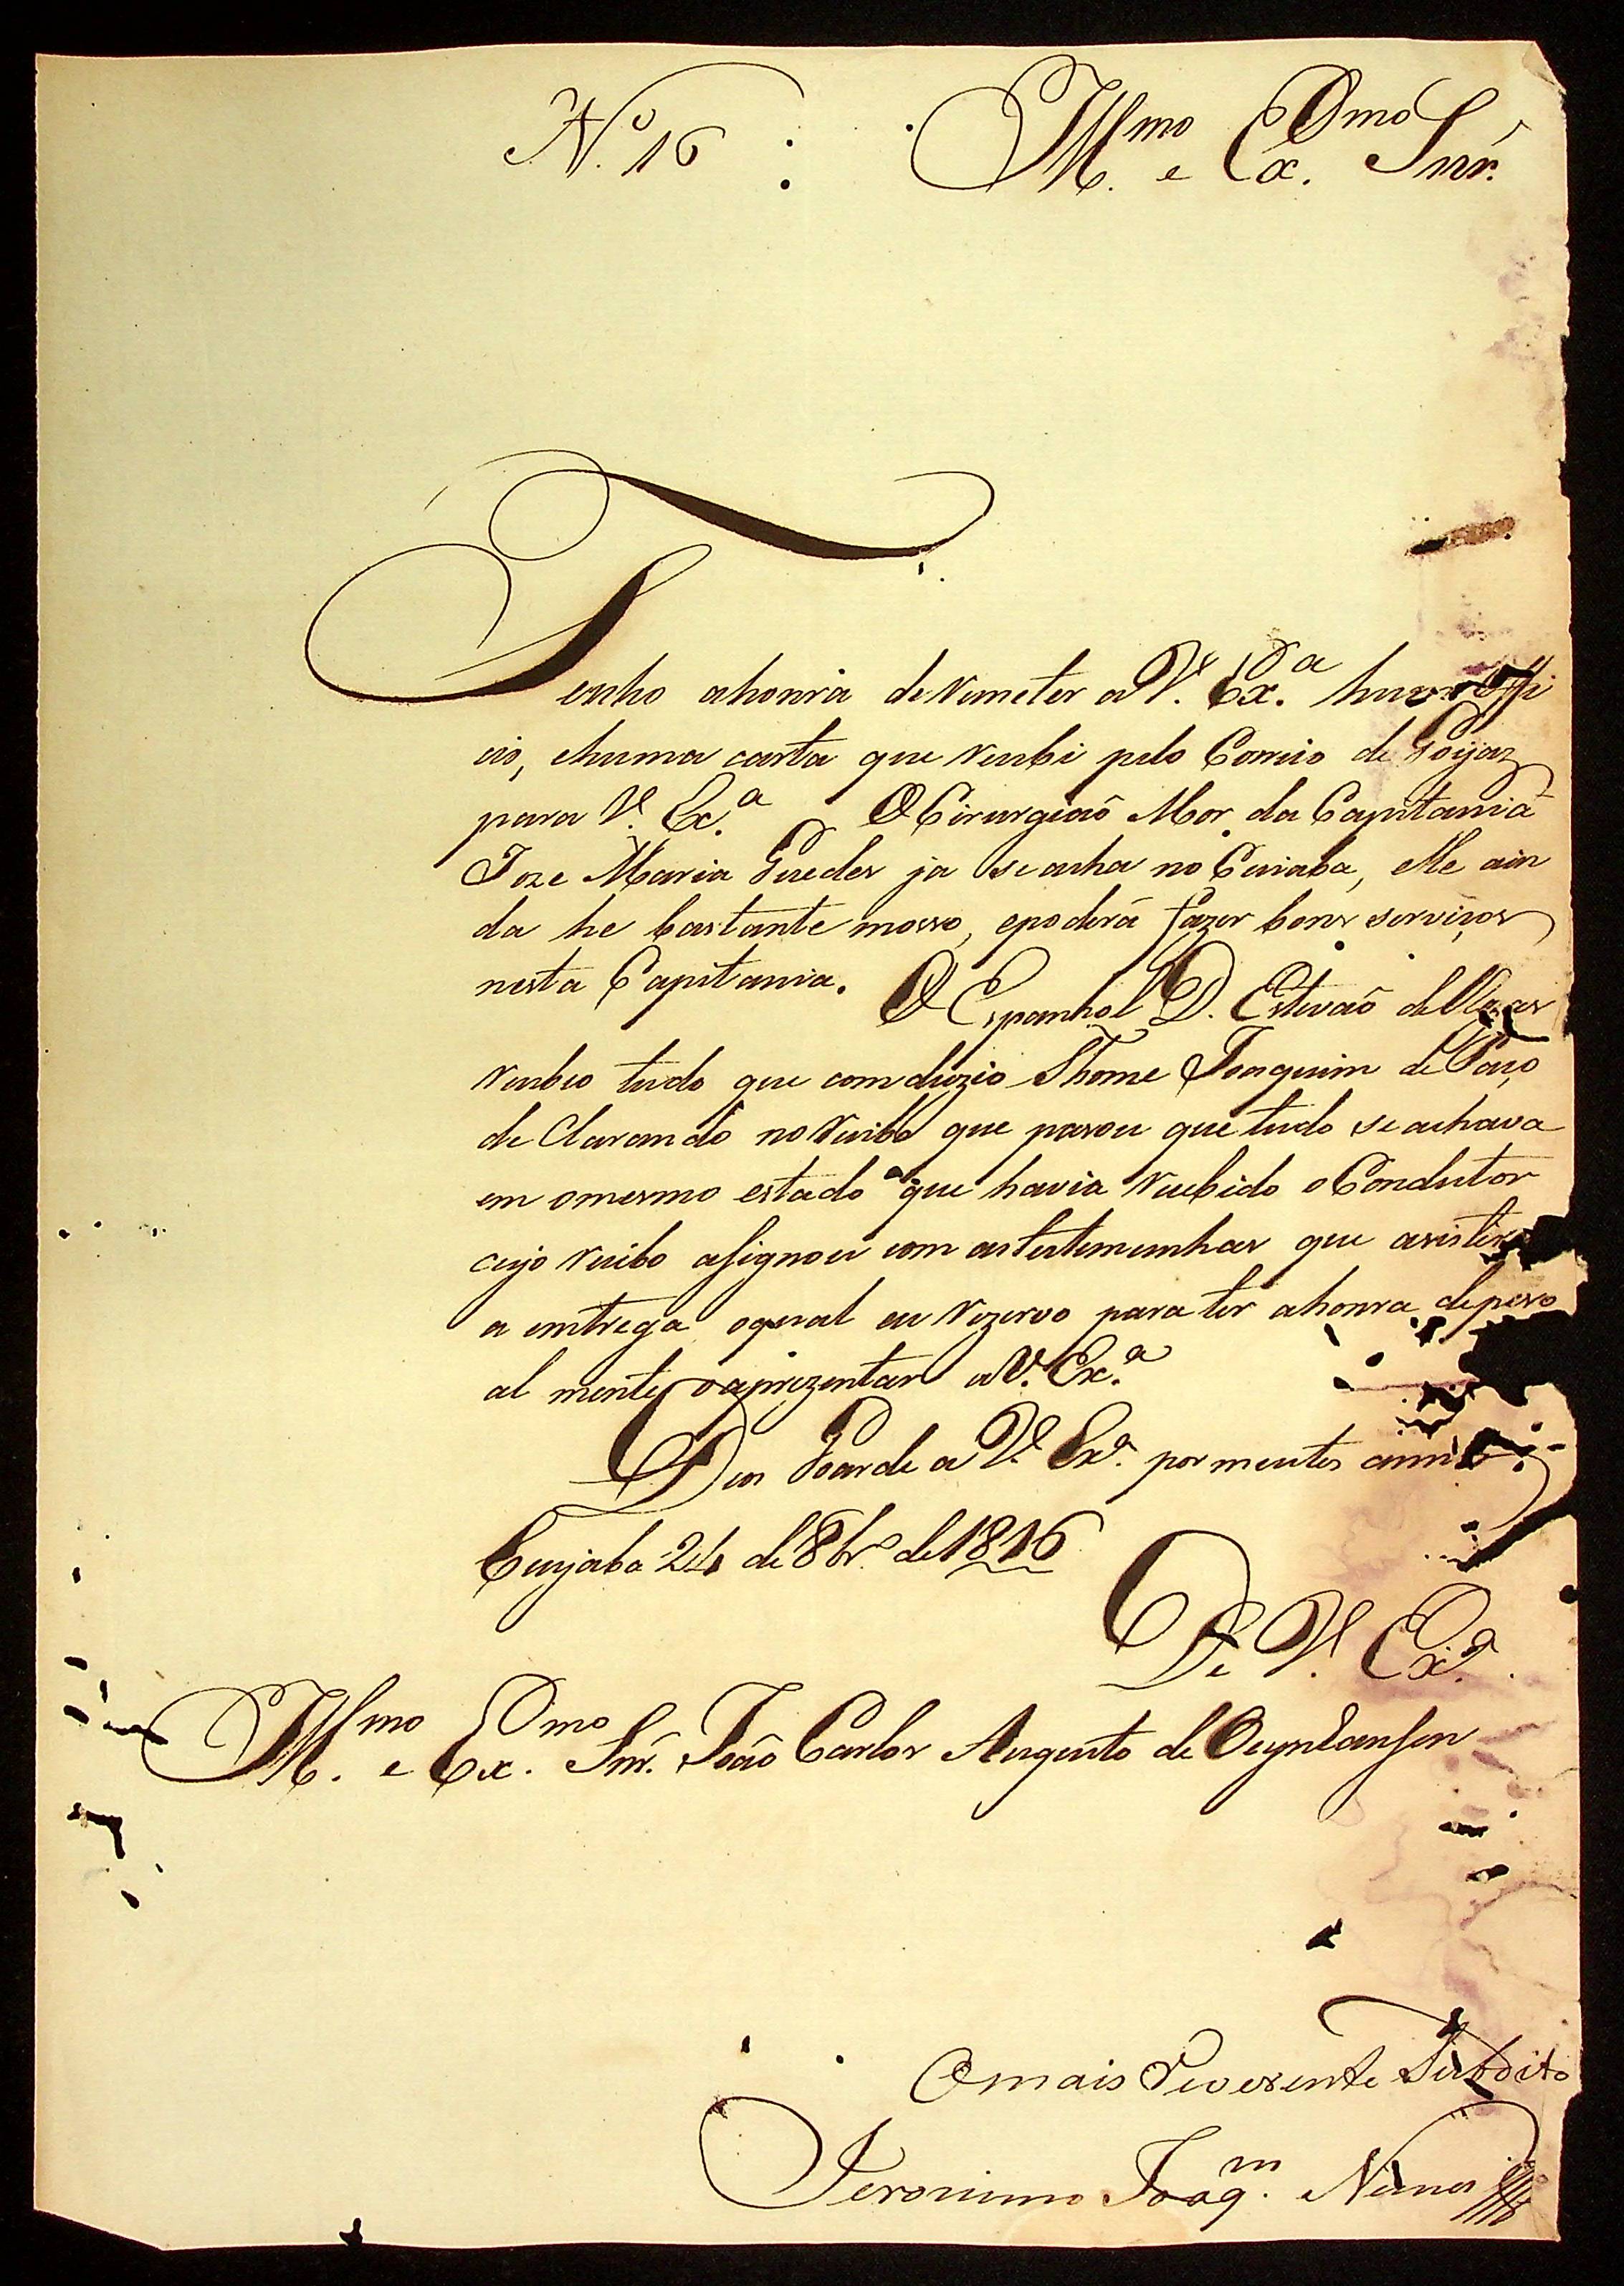 N.º 16
Ill.mo e Ex.mo Snr.
Tenho ahonra de remeter a V. Ex.ª hum Offi
cio, ehuma carta que recebi pelo Correio de Goyaz
para V. Ex.ª O Cirurgiaõ Mor da Capitania
Joze Maria Guedes ja se acha no Cuiaba, elle ain
da he bastante mosso, epoderá fazer bons serviços
nesta Capitania. O Espanhol D. Estevaõ de
recebeo tudo que comduzio Thome Joaquim de
de clarando no recibo que pasou que tudo se achava
em omesmo estado que havia recebido o Condutor
cujo recibo asignou com as testemunhas que asistiraõ
a emtrega oqual eu rezervo para ter ahonra depeso
al mente oaprezentar a V. Ex.ª
Deos Goarde a V. Ex.ª por muitos annos
Cuyaba 24 de 8br.º de 1816
De V. Ex.ª
Ill.mo e Ex.mo Snr. Joaõ Carlos Augusto de Oeynhausen
O mais Reverente Subdito
Jeronimo Joaq.m Nunes